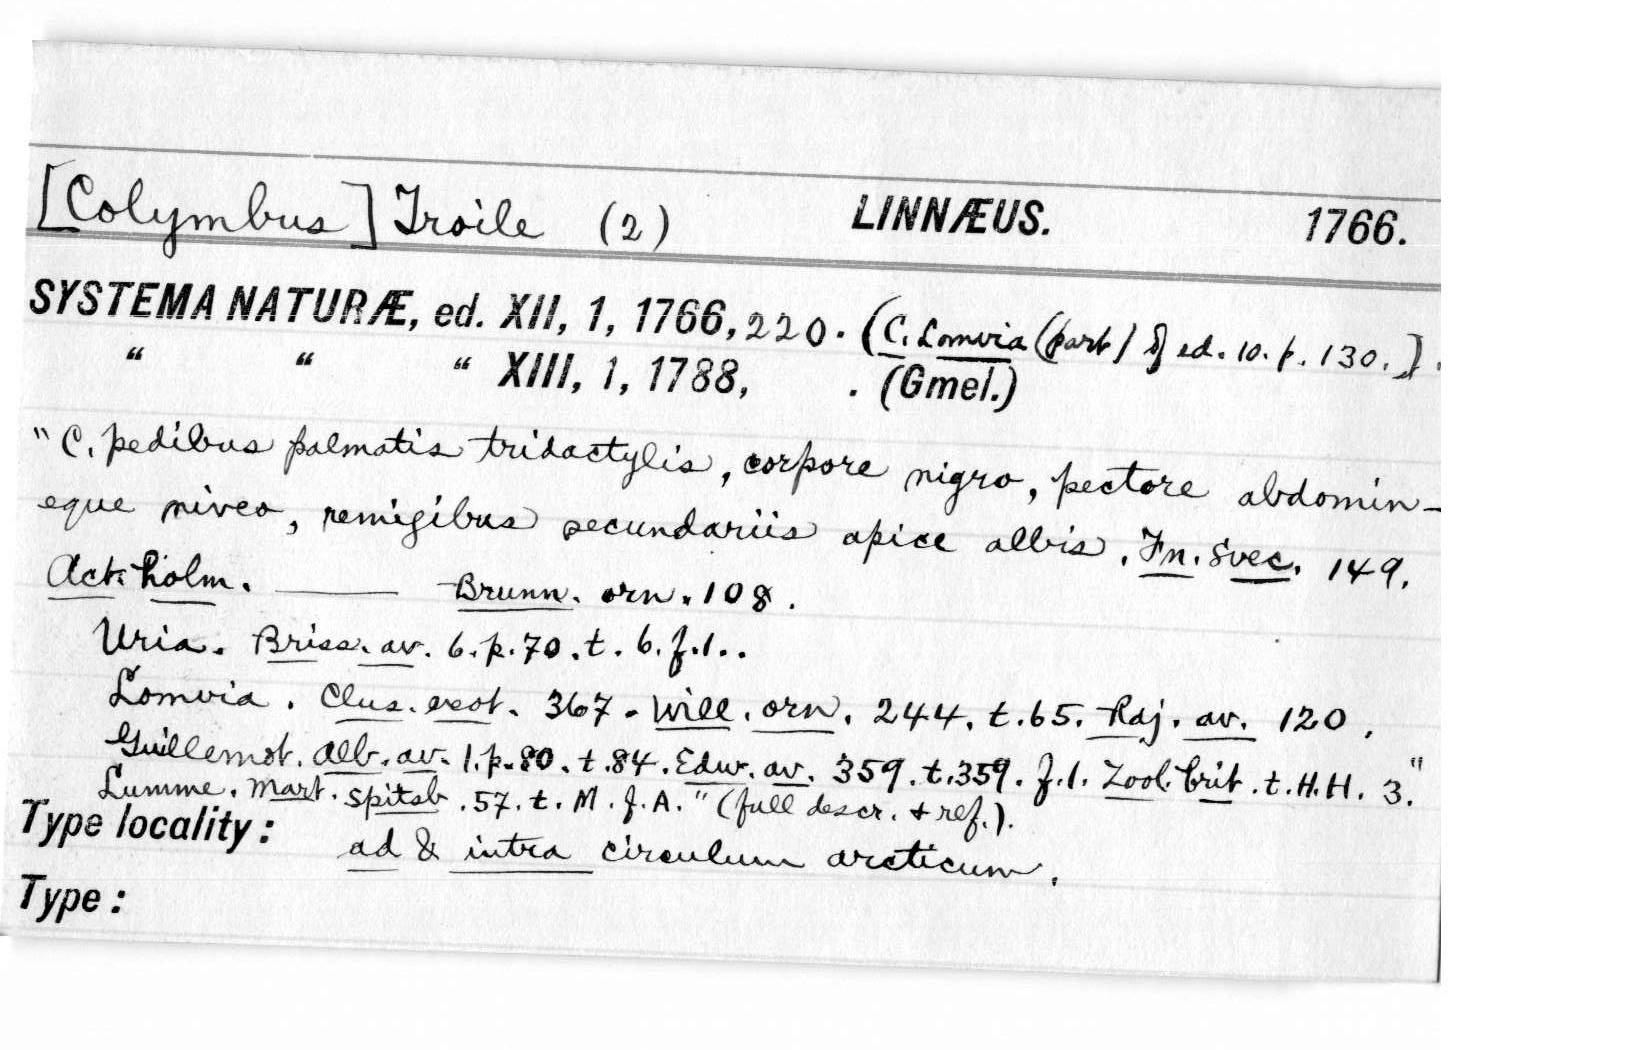 [Colymbus] Troile (2) LINNÆUS. 1766.
SYSTEMA NATURÆ, ed. XII, 1, 1766, 220. (C. Lomvia (part) of ed. 10. p. 130.].
“ “ “ XIII, 1, 1788, . (Gmel.)
"C. pedibus palmatis tridactylis, corpore nigro, pectore abdomin-
eque niveo, remigibus secundariis apice albis. Fn. Svec. 149.
Act. holm. —— Brunn. orn. 108.
Uria. Briss. av. 6. p. 70. t. 6. f. 1..
Lomvia. Clus. exot. 367. Will. orn. 244. t. 65. Raj. av. 120.
Guillemot. Alb. av. 1. p. 80. t. 84. Edw. av. 359. t. 359. f. 1. Zool. brit. t. H. H. 3."
Lumme. Mart. spitsb. 57. t. M. f. A." (full descr. & ref.).
Type locality: ad & intra circulum arcticum.
Type: